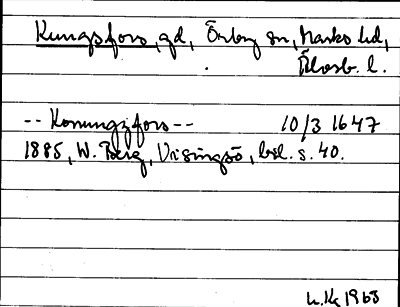 Kungsfors, gd, Örby sn, Marks hd,
Älvsb. l.
-- Konungzfors -- 10/3 1647
1885, W. Berg, Visingsö, bil. s. 40.
1965